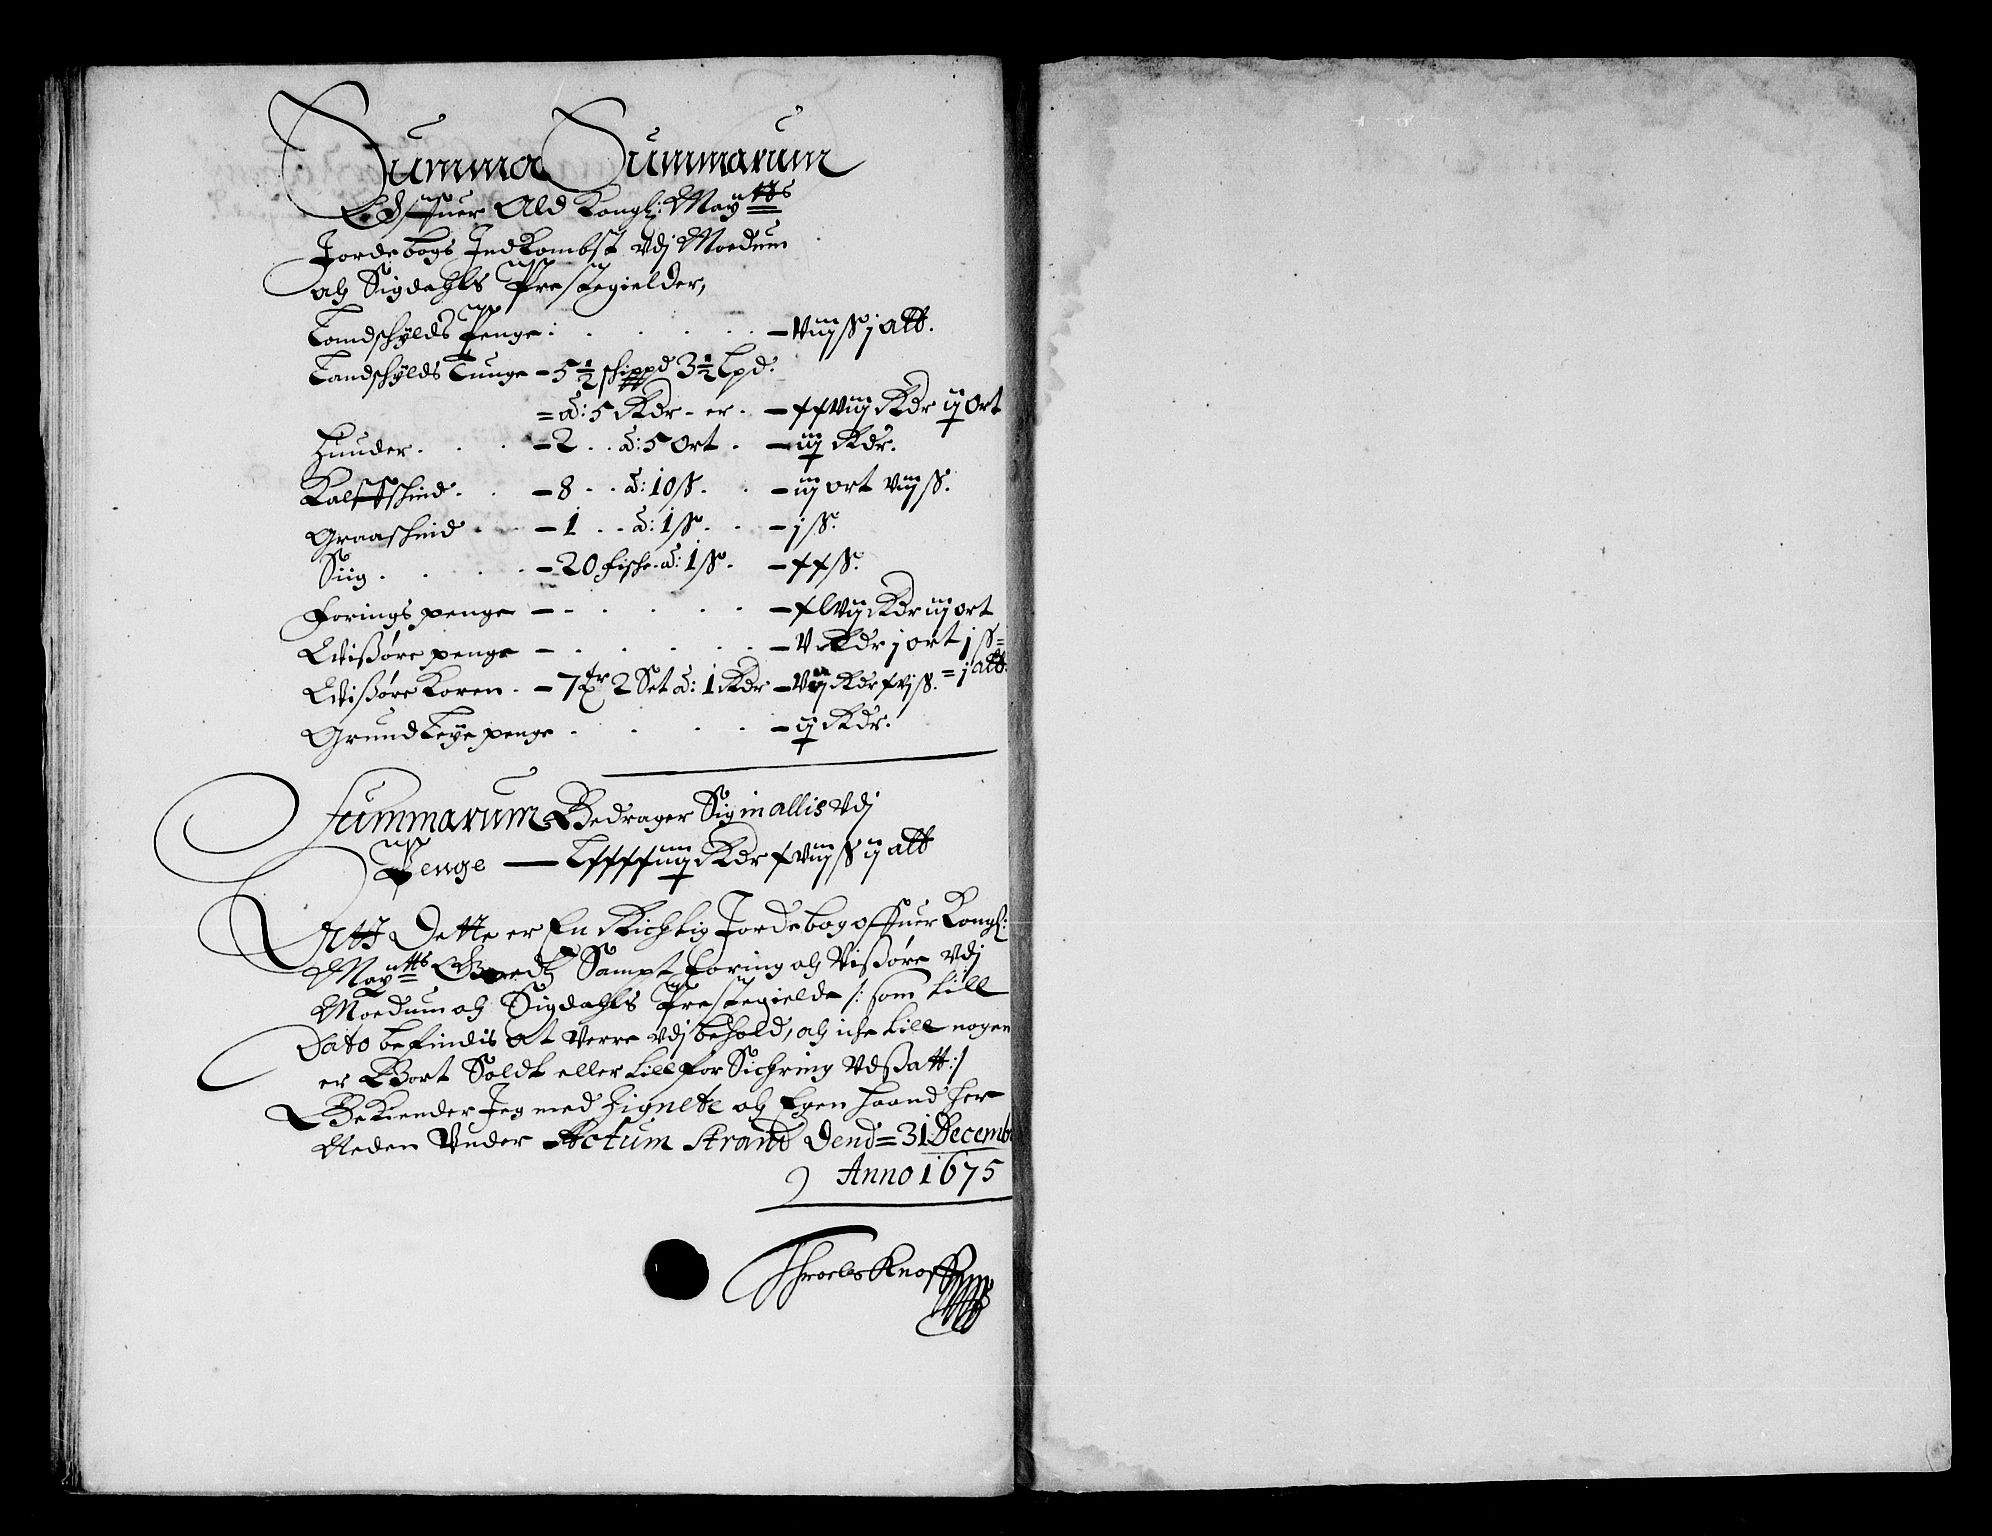 Summa Summarum
Offuer Ald Kongl: Maÿtts
Jordebogs Indkombst vdj Moedum
och Sigdahls Prestegielder,
Landschÿlds Penge: . . . . . – viij ß j alb.
Landschÿlds Tunge – 5½ schippd 3½ Lpd:
= a: 5 Rdr - er. – xxviij Rdr ij ort
Huuder. . . – 2 . . a: 5 ort . – iij Rdr.
Kalffschind. . – 8 . . a: 10 ß. . – iij ort viij ß.
Graaschind . . – 1 . . a: 1 ß. . – j ß.
Siig . . . . – 20 fische a: 1 ß. – xx ß.
Forings penge – . . . . . – xlvij Rdr iij ort
Wißøre penge – . . . . . – v Rdr j ort j ß =
Wißøre Koren . – 7 tr 2 Set a: 1 Rdr – vij Rdr xvj ß. = j alb.
Grund Leÿe penge . . . . – ij Rdr.
Summarum Bedrager Sig in allis vdj
Penge — Lxxxxiiij Rdr xviij ß ij alb
Att Dette er En Richtig Jordebog offuer Kongl:
Maÿtts Goedtz Sampt foring och Vißøre vdj
Moedum och Sigdahls Prestegielde /: som till
Dato befindis at verre vdj behold, och iche till nogen
er Bort Soldt eller till forSichring vdßatt :/
Bekiender Jeg med Zignete och Egen haand her
Neden Vnder Actum Strand Dend = 31 Decemb
Anno 1675
Throels Knoff